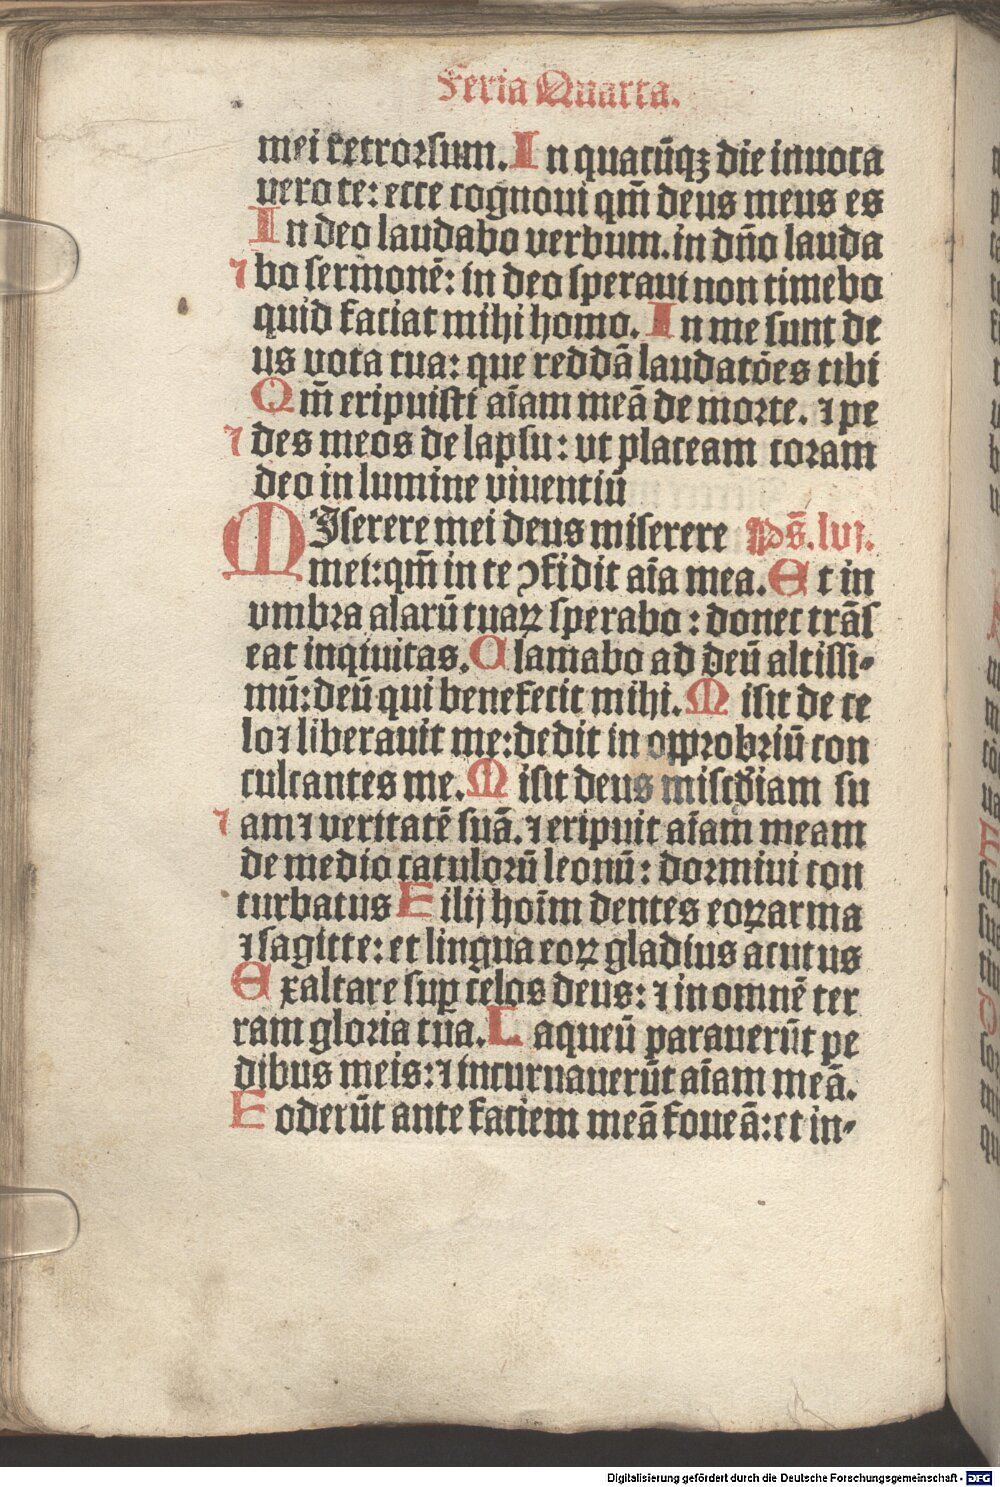 Feria Quarta.
mei retrorsum. In quacūqꝫ die inuoca
uero te: ecce cognoui qm̄ deus meus es
In deo laudabo uerbum. in dn̄o lauda
⁊ bo sermonē: in deo speraui non timebo
quid faciat mihi homo. In me sunt de
us uota tua: que reddā laudatōes tibi
Qm̄ eripuisti aīam meā de morte. ⁊ pe
⁊ des meos de lapsu: ut placeam coram
deo in lumine uiuentiū
MIserere mei deus miserere ps̄. lvj.
mei: qm̄ in te ꝯfidit aīa mea. Et in
umbra alarū tuaꝝ sperabo: donec trās
eat inqiuitas. Clamabo ad deū altissi-
mū: deū qui benefecit mihi. Misit de ce
lo ⁊ liberauit me: dedit in opprobriū con
culcantes me. Misit deus misc̄diam su
⁊ am ⁊ veritatē suā. ⁊ eripuit aīam meam
de medio catulorū leonū: dormiui con
turbatus Filij hoīm dentes eoꝝ arma
⁊ sagitte: et lingua eoꝝ gladius acutus
Exaltare suꝑ celos deus: ⁊ in omnē ter
ram gloria tua. Laqueū parauerūt pe
dibus meis: ⁊ incuruauerūt aīam meā.
Foderūt ante faciem meā foueā: et in-
Digitalisierung gefördert durch die Deutsche Forschungsgemeinschaft - DFG